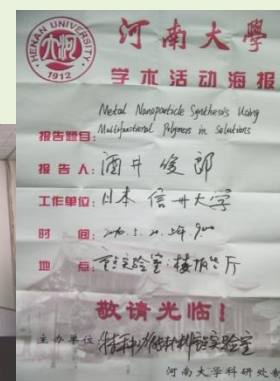 HENAN UNIVERSITY
1912
河南大學
学术活动海报
Metal Nanoparticle Synthesis Using
报告题目: Multifunctional Polymers in Solutions
报告人: 酒井俊郎
工作单位: 日本 信州大学
时间:
地点: 实验室 楼报告厅
敬请光临!
主办单位 特种功能材料 实验室
河南大学科研处